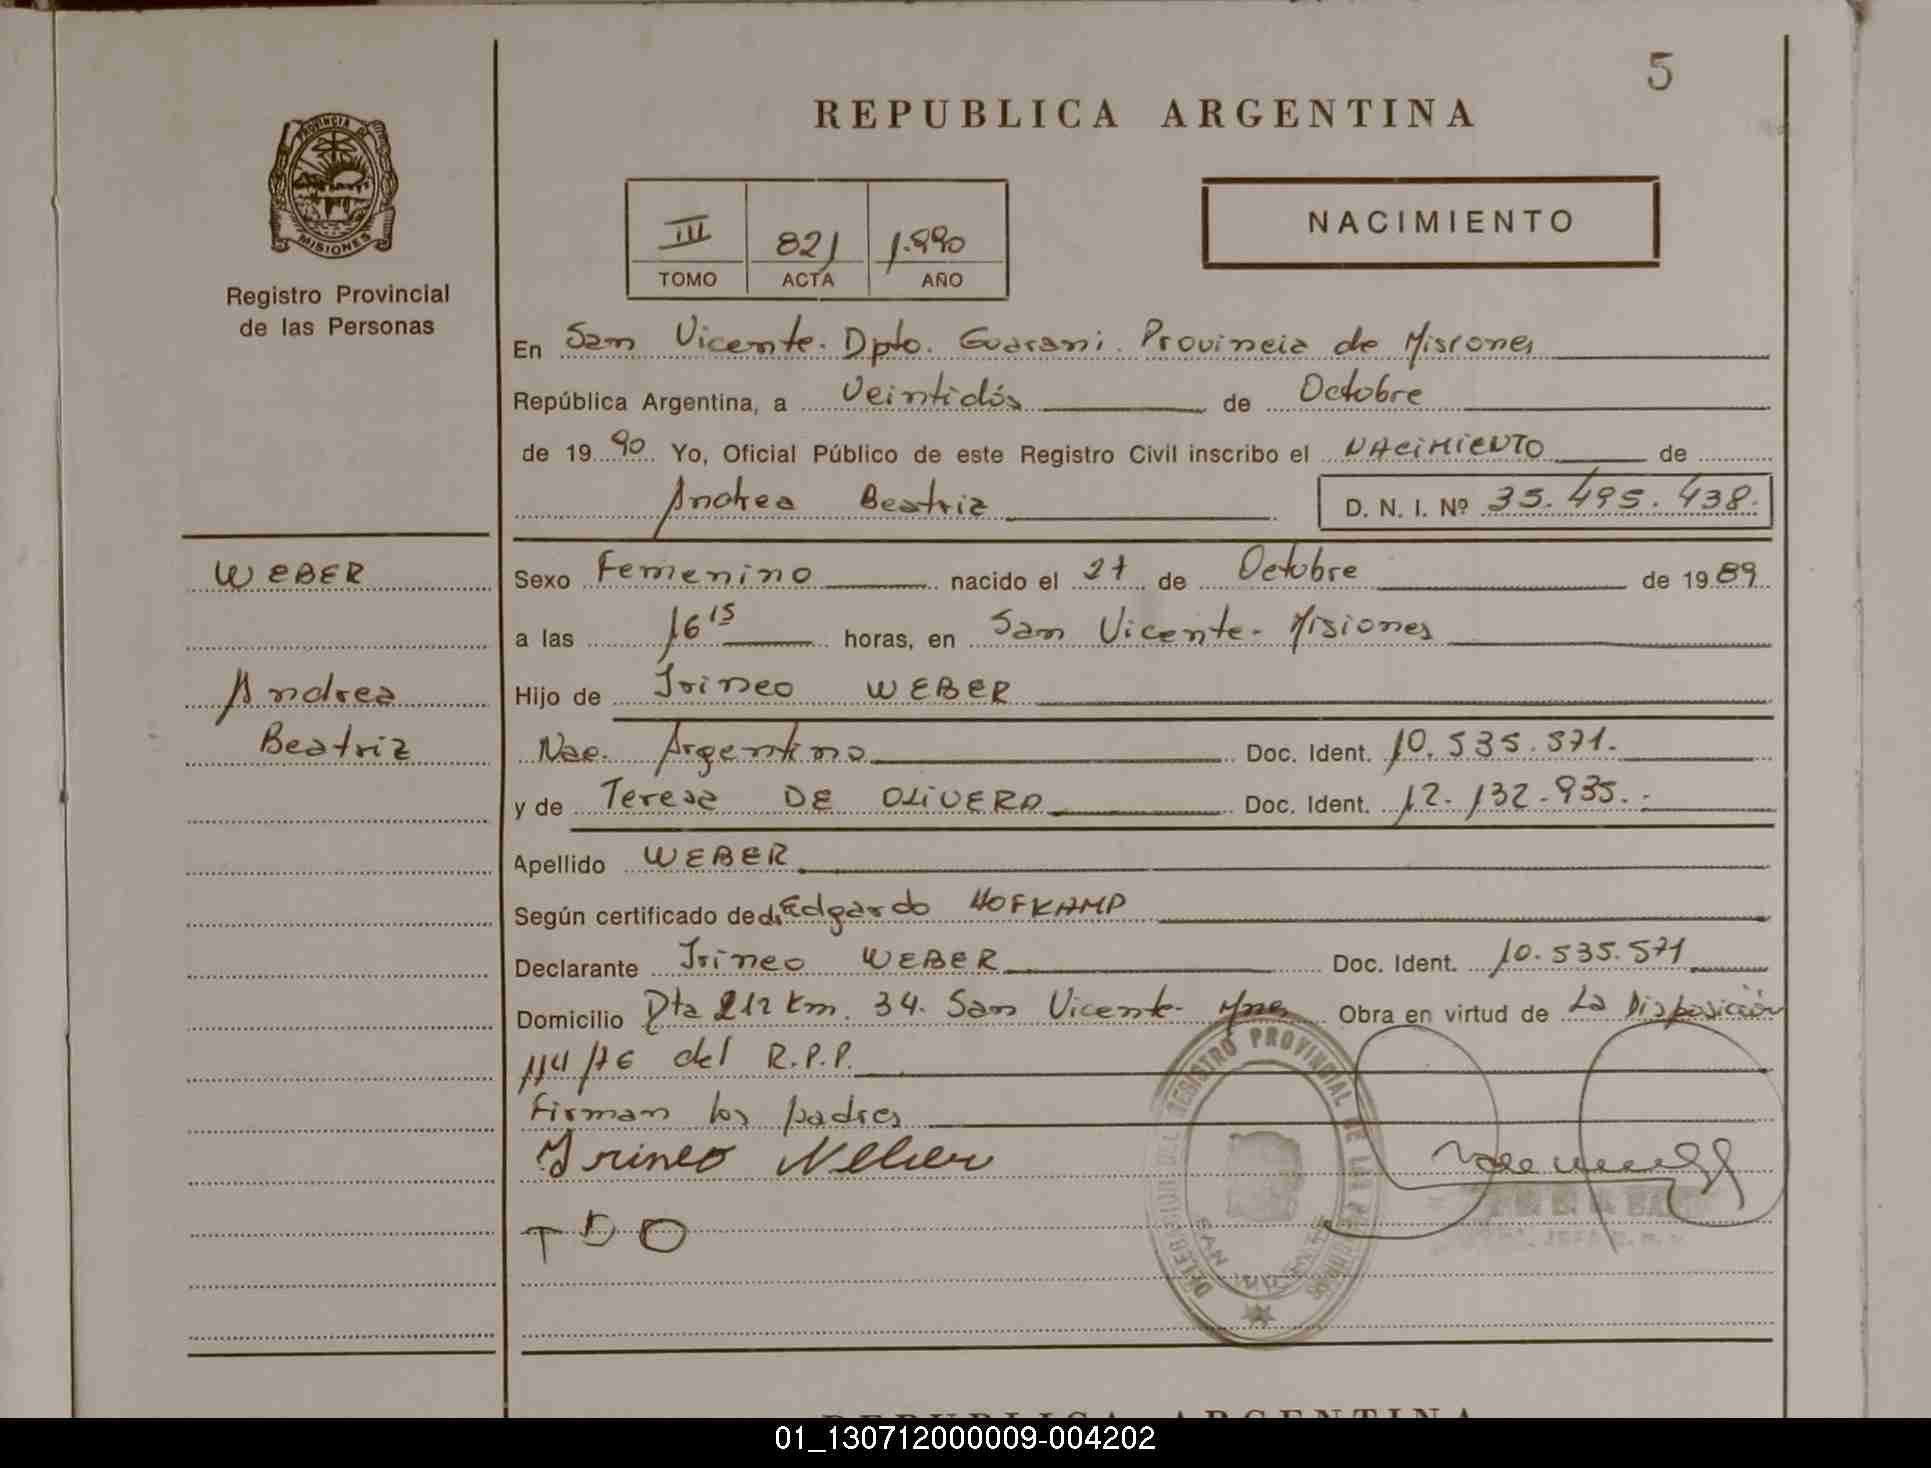 5
REPUBLICA ARGENTINA
PROVINCIA DE
MISIONES
Registro Provincial
de las Personas
III 821 1.990
TOMO ACTA AÑO
NACIMIENTO
En San Vicente. Dpto. Guarani. Provincia de Misiones
República Argentina, a Veintidós de Octubre
de 1990 Yo, Oficial Público de este Registro Civil inscribo el NACIMIENTO de
Andrea Beatriz D. N. I. Nº 35.495.438.
WEBER
Andrea
Beatriz
Sexo Femenino nacido el 27 de Octubre de 1989
a las 16 15 horas, en San Vicente - Misiones
Hijo de Irineo WEBER
Nac. Argentino Doc. Ident. 10.535.571.
y de Teresa DE OLIVERA Doc. Ident. 12.132.935.
Apellido WEBER
Según certificado de dr Edgardo HOFKAMP
Declarante Irineo WEBER Doc. Ident. 10.535.571
Domicilio Rta 212 Km. 34. San Vicente - Mnes Obra en virtud de La Disposición
114/76 del R.P.P.
Firman los padres
Irineo Weber
T D O
DELEGACION DEL REGISTRO PROVINCIAL DE LAS PERSONAS
SAN VICENTE
REPUBLICA ARGENTINA
01_130712000009-004202